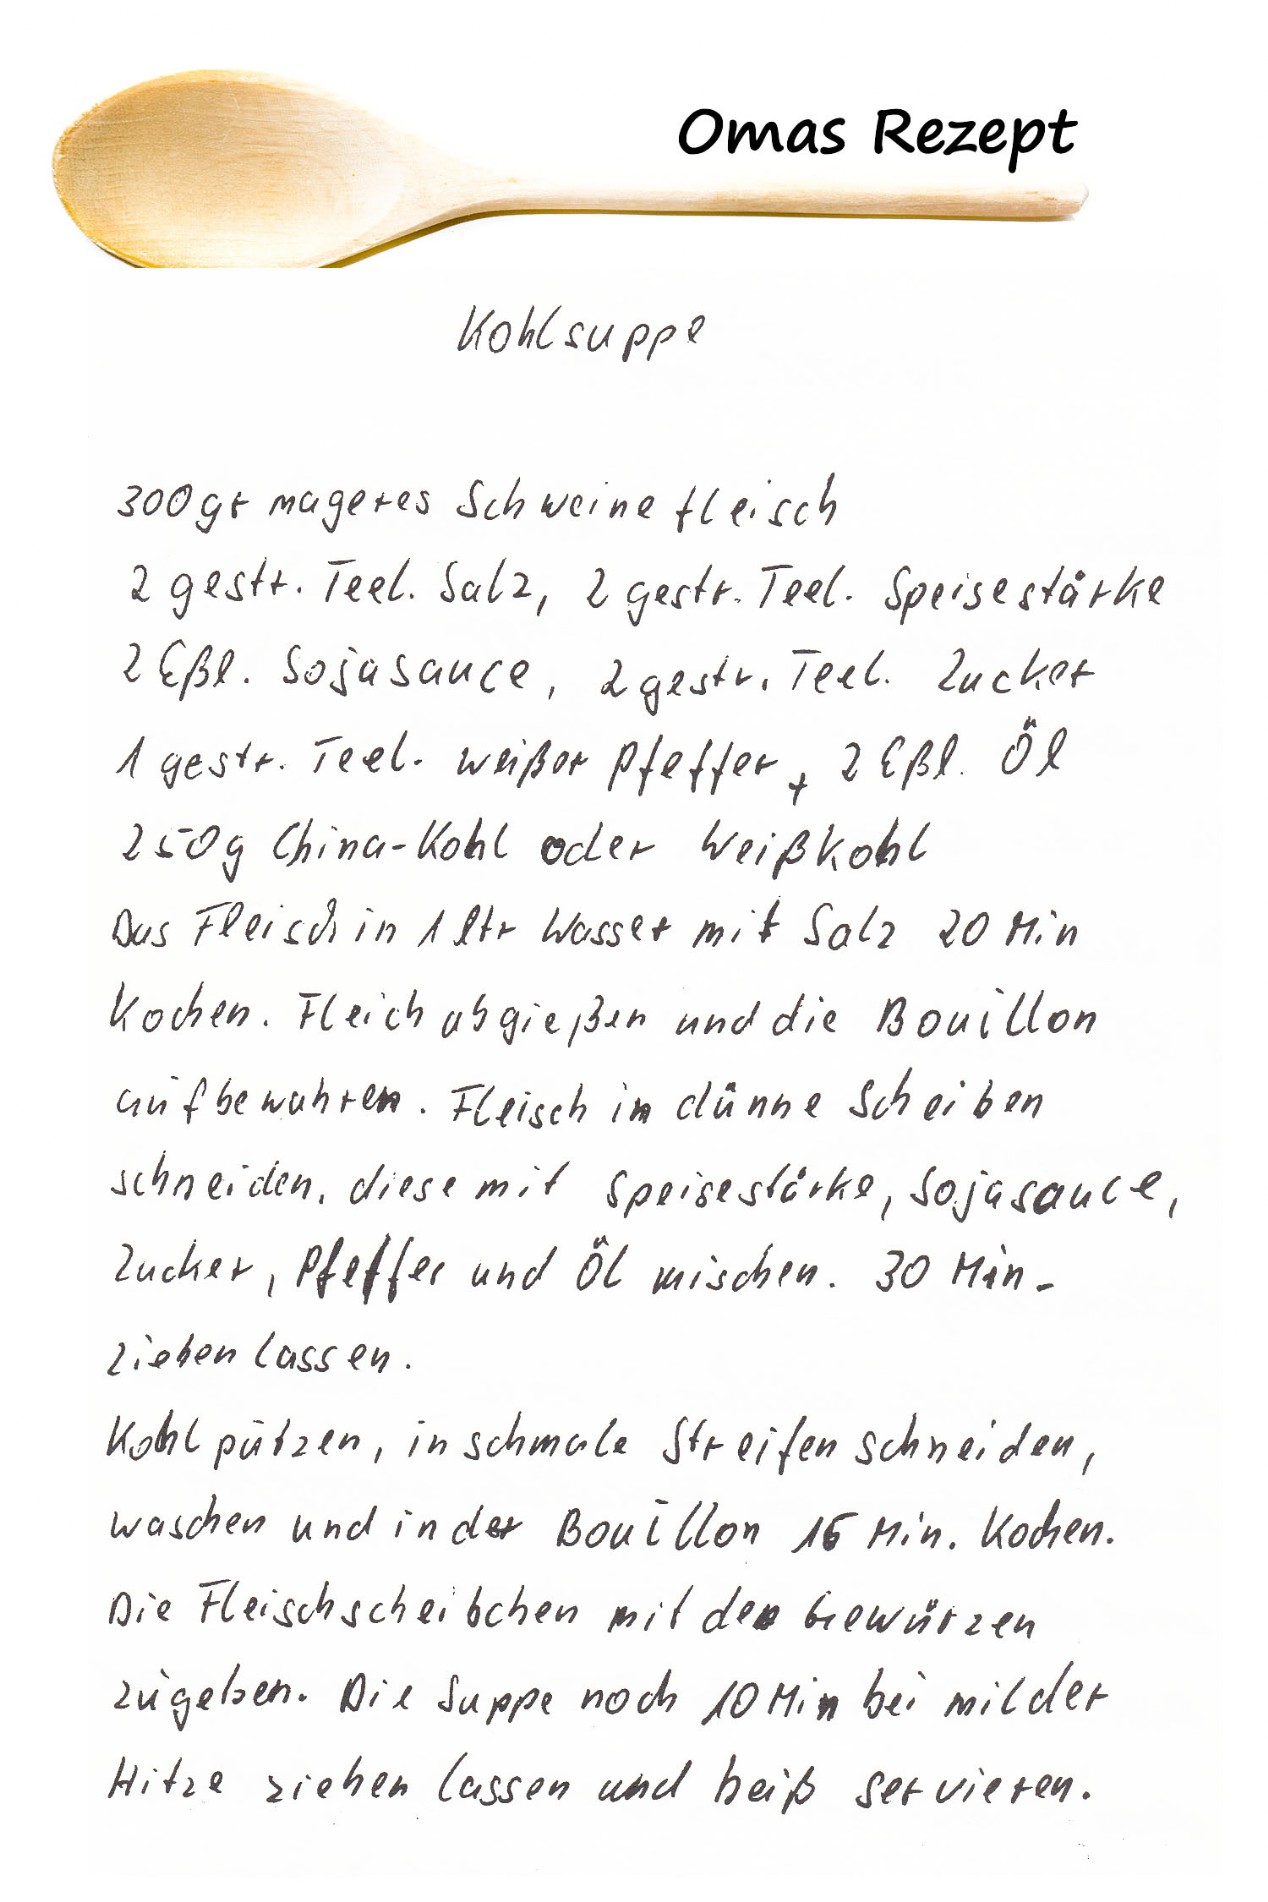 Omas Rezept
Kohlsuppe
300gr mageres Schweinefleisch
2 gestr. Teel. Salz, 2 gestr. Teel. Speisestärke
2 Eßl. Sojasauce, 2 gestr. Teel. Zucker
1 gestr. Teel. weißer Pfeffer, 2 Eßl. Öl
250g China-Kohl oder Weißkohl
Das Fleisch in 1 ltr Wasser mit Salz 20 Min
Kochen. Fleich abgießen und die Bouillon
aufbewahren. Fleisch in dünne Scheiben
schneiden, diese mit Speisestärke, Sojasauce,
Zucker, Pfeffer und Öl mischen. 30 Min.
ziehen lassen.
Kohl putzen, in schmale Streifen schneiden,
waschen und in der Bouillon 15 Min. Kochen.
Die Fleischscheibchen mit den Gewürzen
zugeben. Die Suppe noch 10 Min bei milder
Hitze ziehen lassen und heiß servieren.